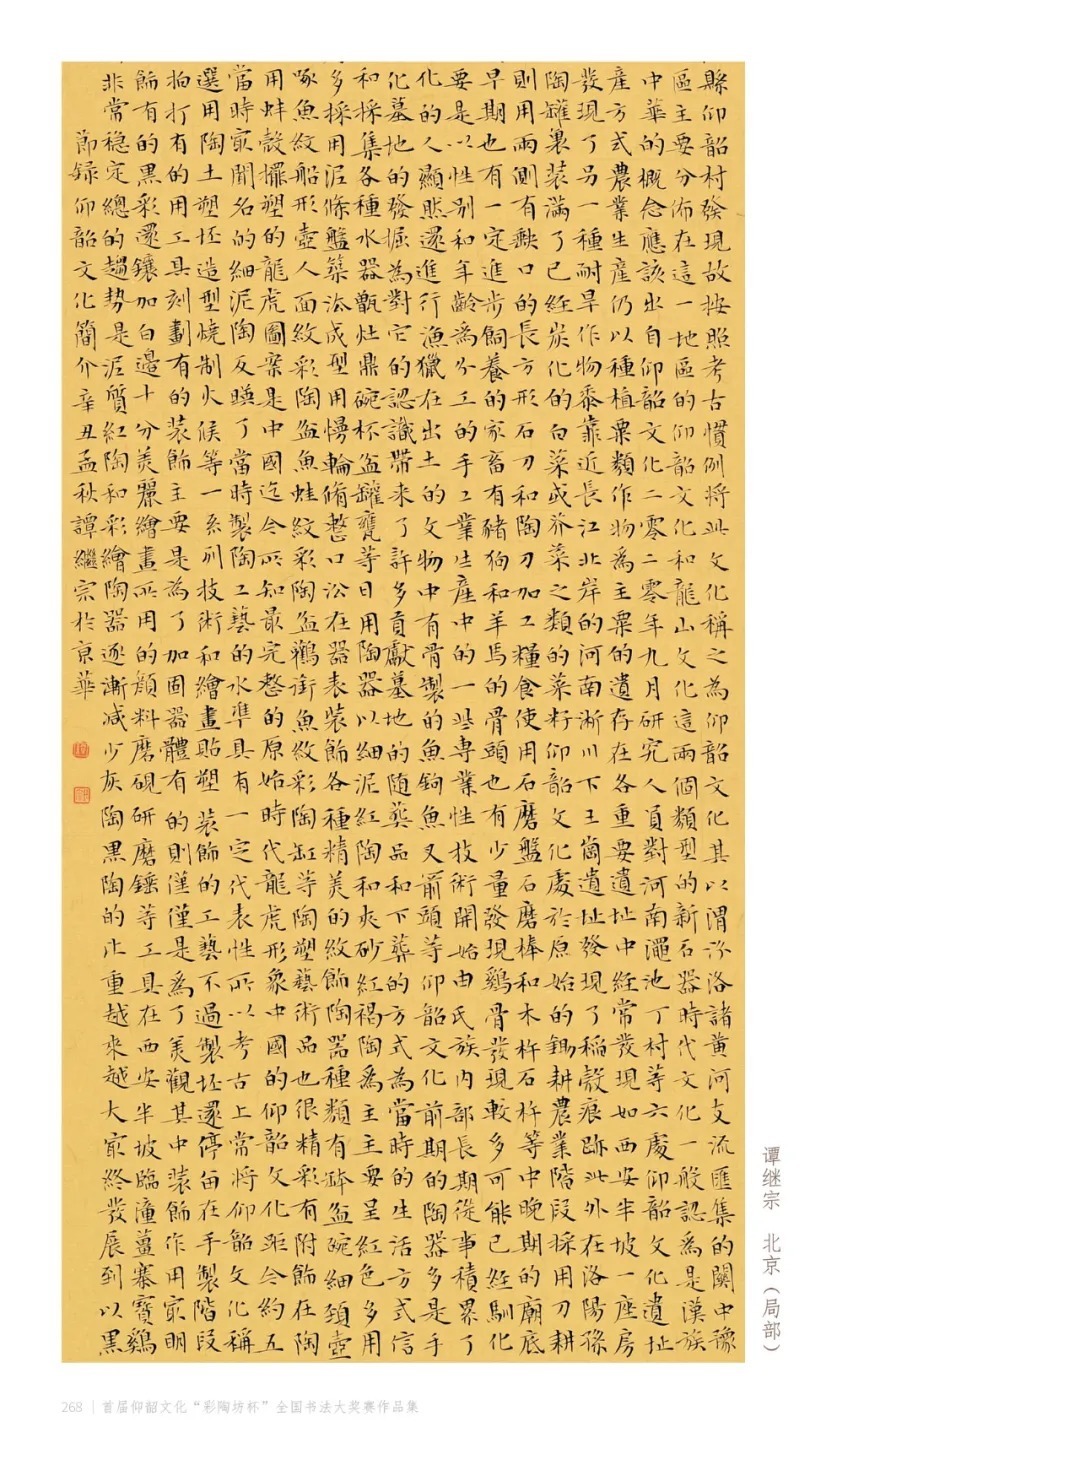 縣仰韶村發現故按照考古慣例將此文化稱之為仰韶文化其以渭汾洛諸黃河支流匯集的關中豫
區主要分佈在這一地區的仰韶文化和龍山文化這兩個類型的新石器時代文化一般認為是漢族
中華的概念應該出自仰韶文化二零二零年九月研究人員對河南澠池丁村等六處仰韶文化遺址
產方式農業生產仍以種植粟類作物為主粟的遺存在各重要遺址中經常發現如西安半坡一座房
發現了另一種耐旱作物黍靠近長江北岸的河南淅川下王崗遺址發現了稻殼痕跡此外在洛陽孫
陶罐裏裝滿了已經炭化的白菜或芥菜之類的菜籽仰韶文化處於原始的鋤耕農業階段採用刀耕
則用兩側有缺口的長方形石刀和陶刀加工糧食使用石磨盤石磨棒和木杵石杵等中晚期的廟底
早期也有一定進步飼養的家畜有豬狗和羊馬的骨頭也有少量發現鷄骨發現較多可能已經馴化
要是以性別和年齡為分工的手工業生產中的一些專業性技術開始由氏族內部長期從事積累了
化的人顯然還進行漁獵在出土的文物中有骨製的魚鉤魚叉箭頭等仰韶文化前期的陶器多是手
化墓地的發掘為對它的認識帶來了許多貢獻墓地的随葬品和下葬的方式為當時的生活方式信
和採集各種水器甑灶鼎碗杯盆罐甕等日用陶器以細泥紅陶和夾砂紅褐陶為主主要呈紅色多用
多採用泥條盤築法成型用慢輪脩整口沿在器表裝飾各種精美的紋飾陶器種類有缽盆碗細頸壺
啄魚紋船形壺人面紋彩陶盆魚蛙紋彩陶盆鸛銜魚紋彩陶缸等陶塑藝術品也很精彩有附飾在陶
用蚌殼擺塑的龍虎圖案是中國迄今所知最完整的原始時代龍虎形象中國的仰韶文化距今約五
當時最聞名的細泥陶反映了當時製陶工藝的水準具有一定代表性所以考古上常將仰韶文化稱
選用陶土塑坯造型燒制火候等一系列技術和繪畫貼塑裝飾的工藝不過製坯還停留在手製階段
拍打有的用工具刻劃有的裝飾主要是為了加固器體有的則僅僅是為了美觀其中裝飾作用最明
飾有的黑彩還鑲加白邊十分美麗繪畫所用的顏料磨硯研磨錘等工具在西安半坡臨潼薑寨寶鷄
非常穩定總的趨勢是泥質紅陶和彩繪陶器逐漸減少灰陶黑陶的比重越來越大最終發展到以黑
節錄仰韶文化簡介辛丑孟秋譚繼宗於京華
谭继宗 北京（局部）
268 | 首届仰韶文化“彩陶坊杯”全国书法大奖赛作品集